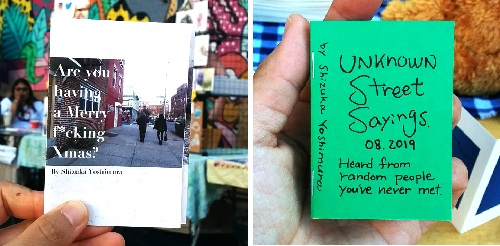 Are you
having
a Merry
f*cking
Xmas?
By Shizuka Yoshimura
by Shizuka Yoshimura
UNKNOWN
Street
Sayings.
08.2019
Heard from
random people
you've never met.